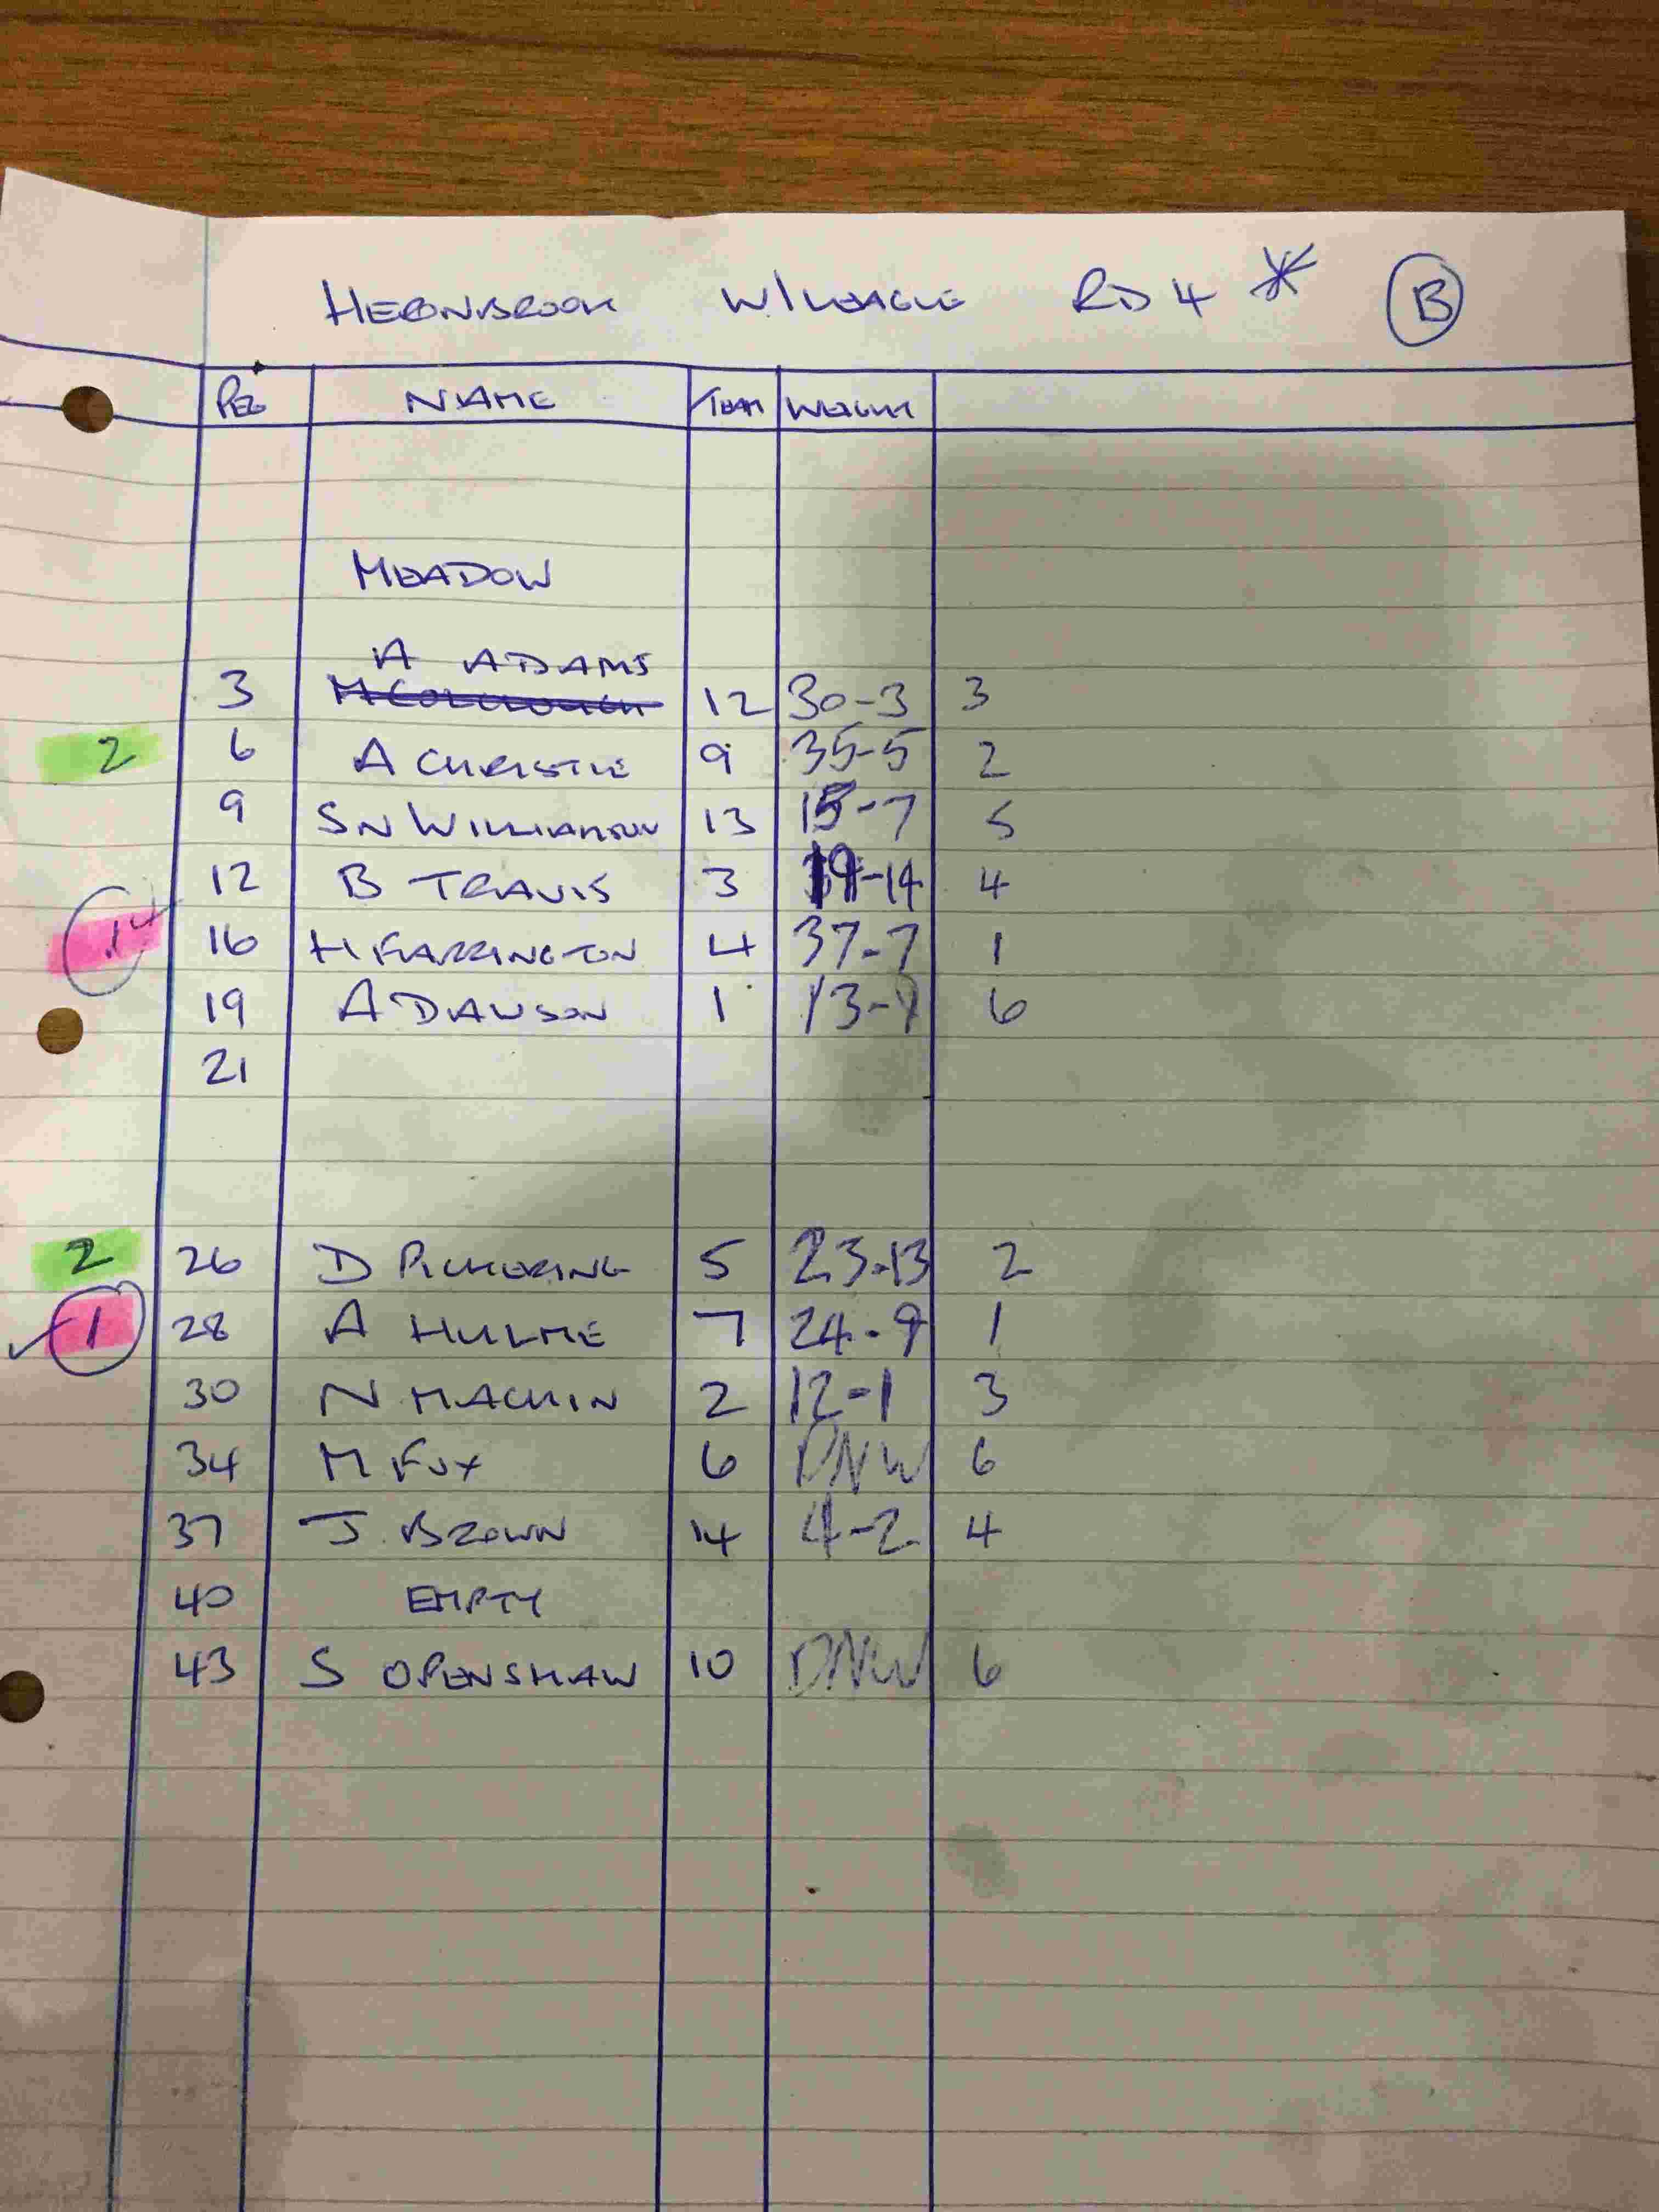 HERONBROOK W/LEAGUE RD 4 * B
PEG NAME TEAM WEIGHT
MEADOW
A ADAMS
3 12 30-3 3
2 6 A CHRISTIE 9 35-5 2
9 SN WILLIAMSON 13 15-7 5
12 B TRAVIS 3 19-14 4
1 16 H FARRINGTON 4 37-7 1
19 A DAWSON 1 13-9 6
21
2 26 D PICKERING 5 23-13 2
1 28 A HULME 7 24-9 1
30 N MACHIN 2 12-1 3
34 M FOX 6 DNW 6
37 J. BROWN 14 4-2 4
40 EMPTY
43 S OPENSHAW 10 DNW 6